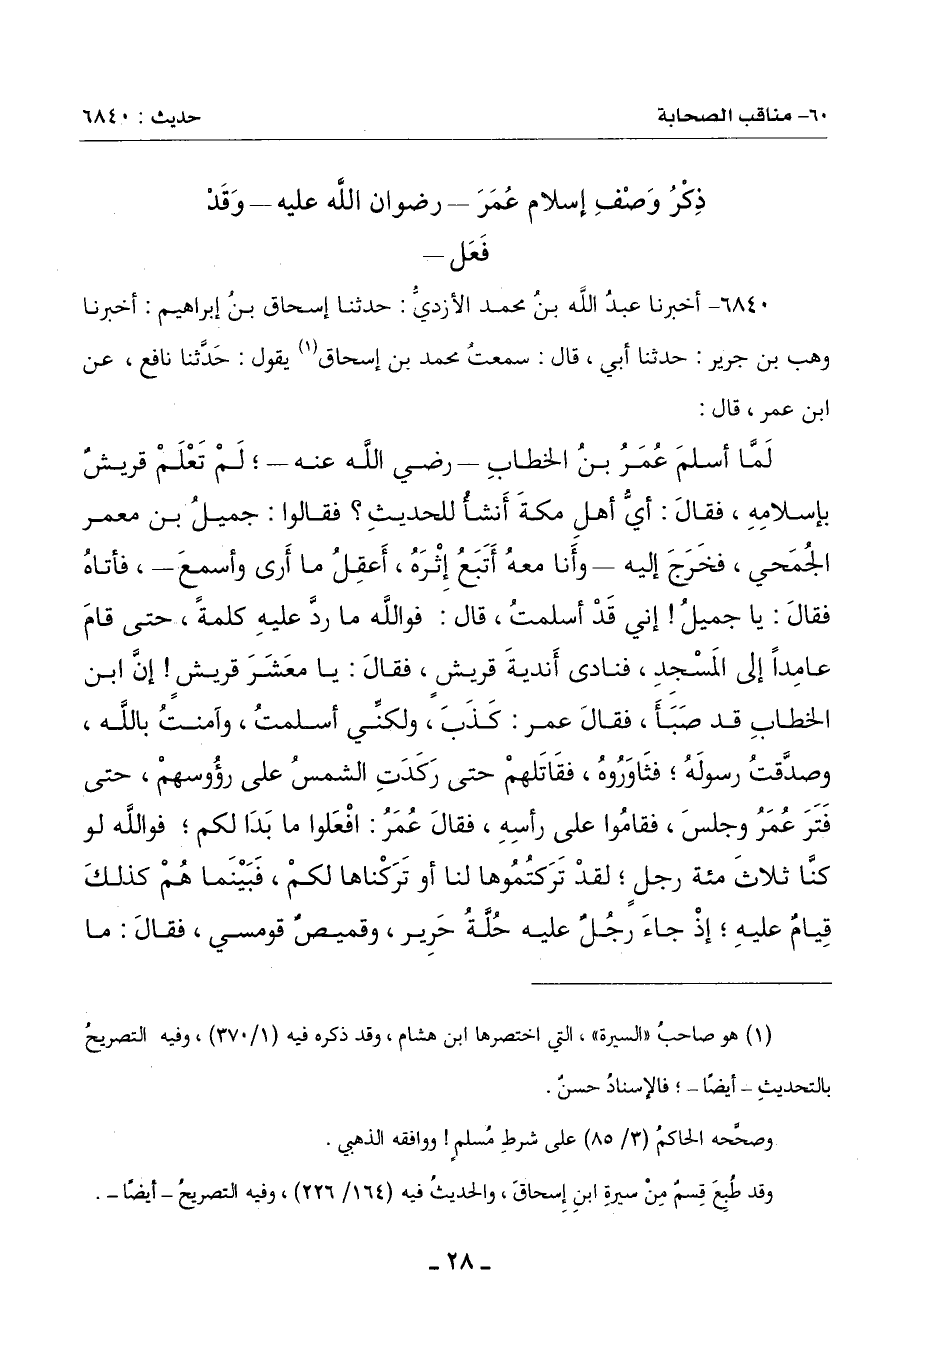 ٦٠- مناقب الصحابة
حديث : ٦٨٤٠
ذِكْرُ وَصْفِ إسلام عُمَرَ – رضوان اللَّه عليه – وَقَدْ
فَعَل –
٦٨٤٠- أخبرنا عبدُ اللَّه بنُ محمد الأزديُّ : حدثنا إسحاق بنُ إبراهيم : أخبرنا
وهب بن جرير : حدثنا أبي ، قال : سمعتُ محمد بن إسحاق(١) يقول : حَدَّثنا نافع ، عن
ابن عمر ، قال :
لَمَّا أسلمَ عُمَرُ بنُ الخطابِ – رضي اللَّه عنه – ؛ لَمْ تَعْلَمْ قريشٌ
بإسلامِهِ ، فقالَ : أيُّ أهلِ مكةَ أنشأُ للحديثِ ؟ فقالوا : جميلُ بن معمر
الجُمَحي ، فخَرَجَ إليه – وأنا معهُ أَتَبَعُ إِثْرَهُ ، أَعقِلُ ما أَرى وأسمعَ – ، فأتاهُ
فقالَ : يا جميلُ ! إني قَدْ أسلمتُ ، قال : فواللَّه ما ردَّ عليهِ كلمةً ، حتى قامَ
عامِداً إلى المَسْجدِ ، فنادى أَنديةَ قريشٍ ، فقالَ : يا معَشَرَ قريشٍ ! إنَّ ابن
الخطابِ قد صَبَأَ ، فقالَ عمر : كَذَبَ ، ولكنِّي أسلمتُ ، وآمنتُ باللَّه ،
وصدَّقتُ رسولَهُ ؛ فثاوَرُوهُ ، فقَاتَلهمْ حتى رَكَدَتِ الشمسُ على رؤُوسهمْ ، حتى
فَتَرَ عُمَرُ وجلسَ ، فقامُوا على رأسِهِ ، فقالَ عُمَرُ : افْعَلوا ما بَدَا لكم ؛ فواللَّه لو
كنَّا ثلاثَ مئة رجلٍ ؛ لقدْ تَرَكتُمُوها لنا أو تَرَكْناها لكمْ ، فَبَيْنَما هُمْ كذلكَ
قِيامٌ عليهِ ؛ إذْ جاءَ رجُلٌ عليه حُلَّةُ حَرِيرٍ ، وقميصٌ قومسي ، فقالَ : ما
(١) هو صاحبُ «السيرة» ، التي اختصرها ابن هشام ، وقد ذكره فيه (١/ ٣٧٠) ، وفيه التصريحُ
بالتحديثِ - أيضًا - ؛ فالإسنادُ حسنٌ .
وصحَّحه الحاكمُ (٣/ ٨٥) على شرطِ مُسلمٍ ! ووافقه الذهبي .
وقد طُبِعَ قِسمٌ مِنْ سيرةِ ابنِ إسحاقَ ، والحديثُ فيه (١٦٤/ ٢٢٦) ، وفيه التصريحُ - أيضًا - .
ـ ٢٨ ـ